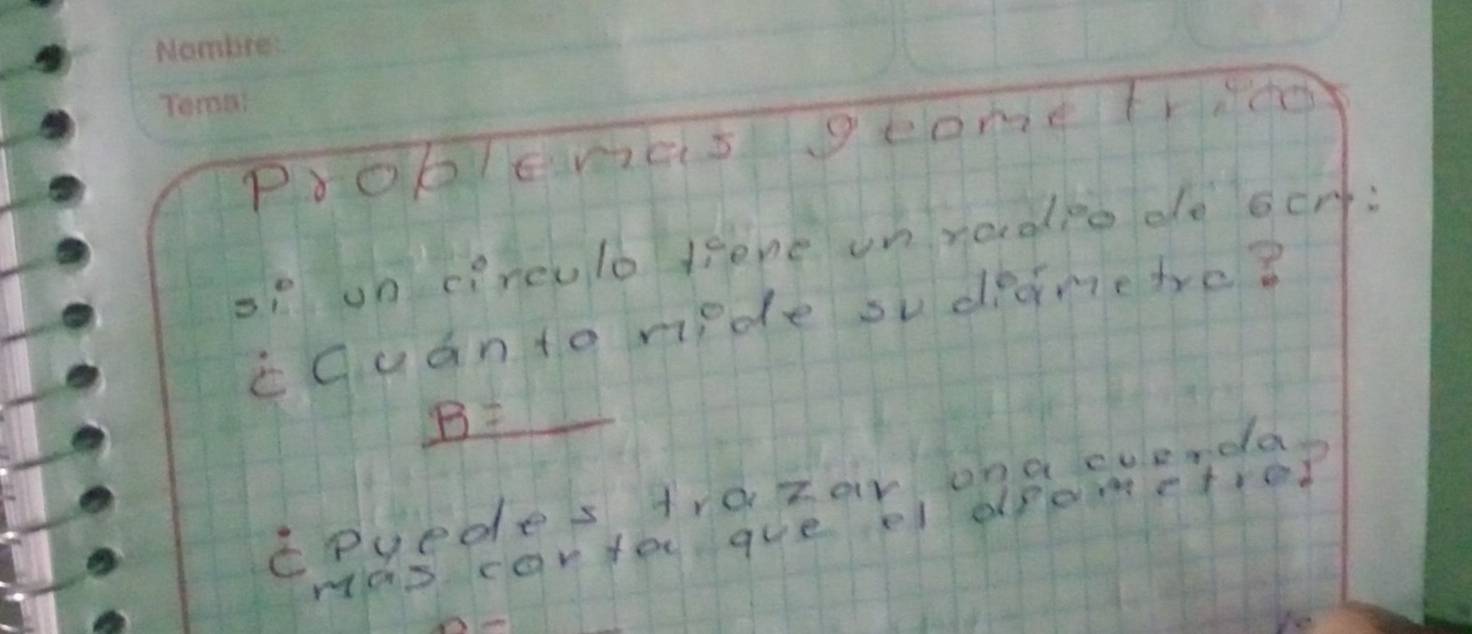 Nombre:
Tema:
Problemas geometrico
si un circulo tiene un radio de 6cm:
¿Cuánto mide su diámetro?
B=
¿Puedes trazar una cuerda
más corta que el diametro?